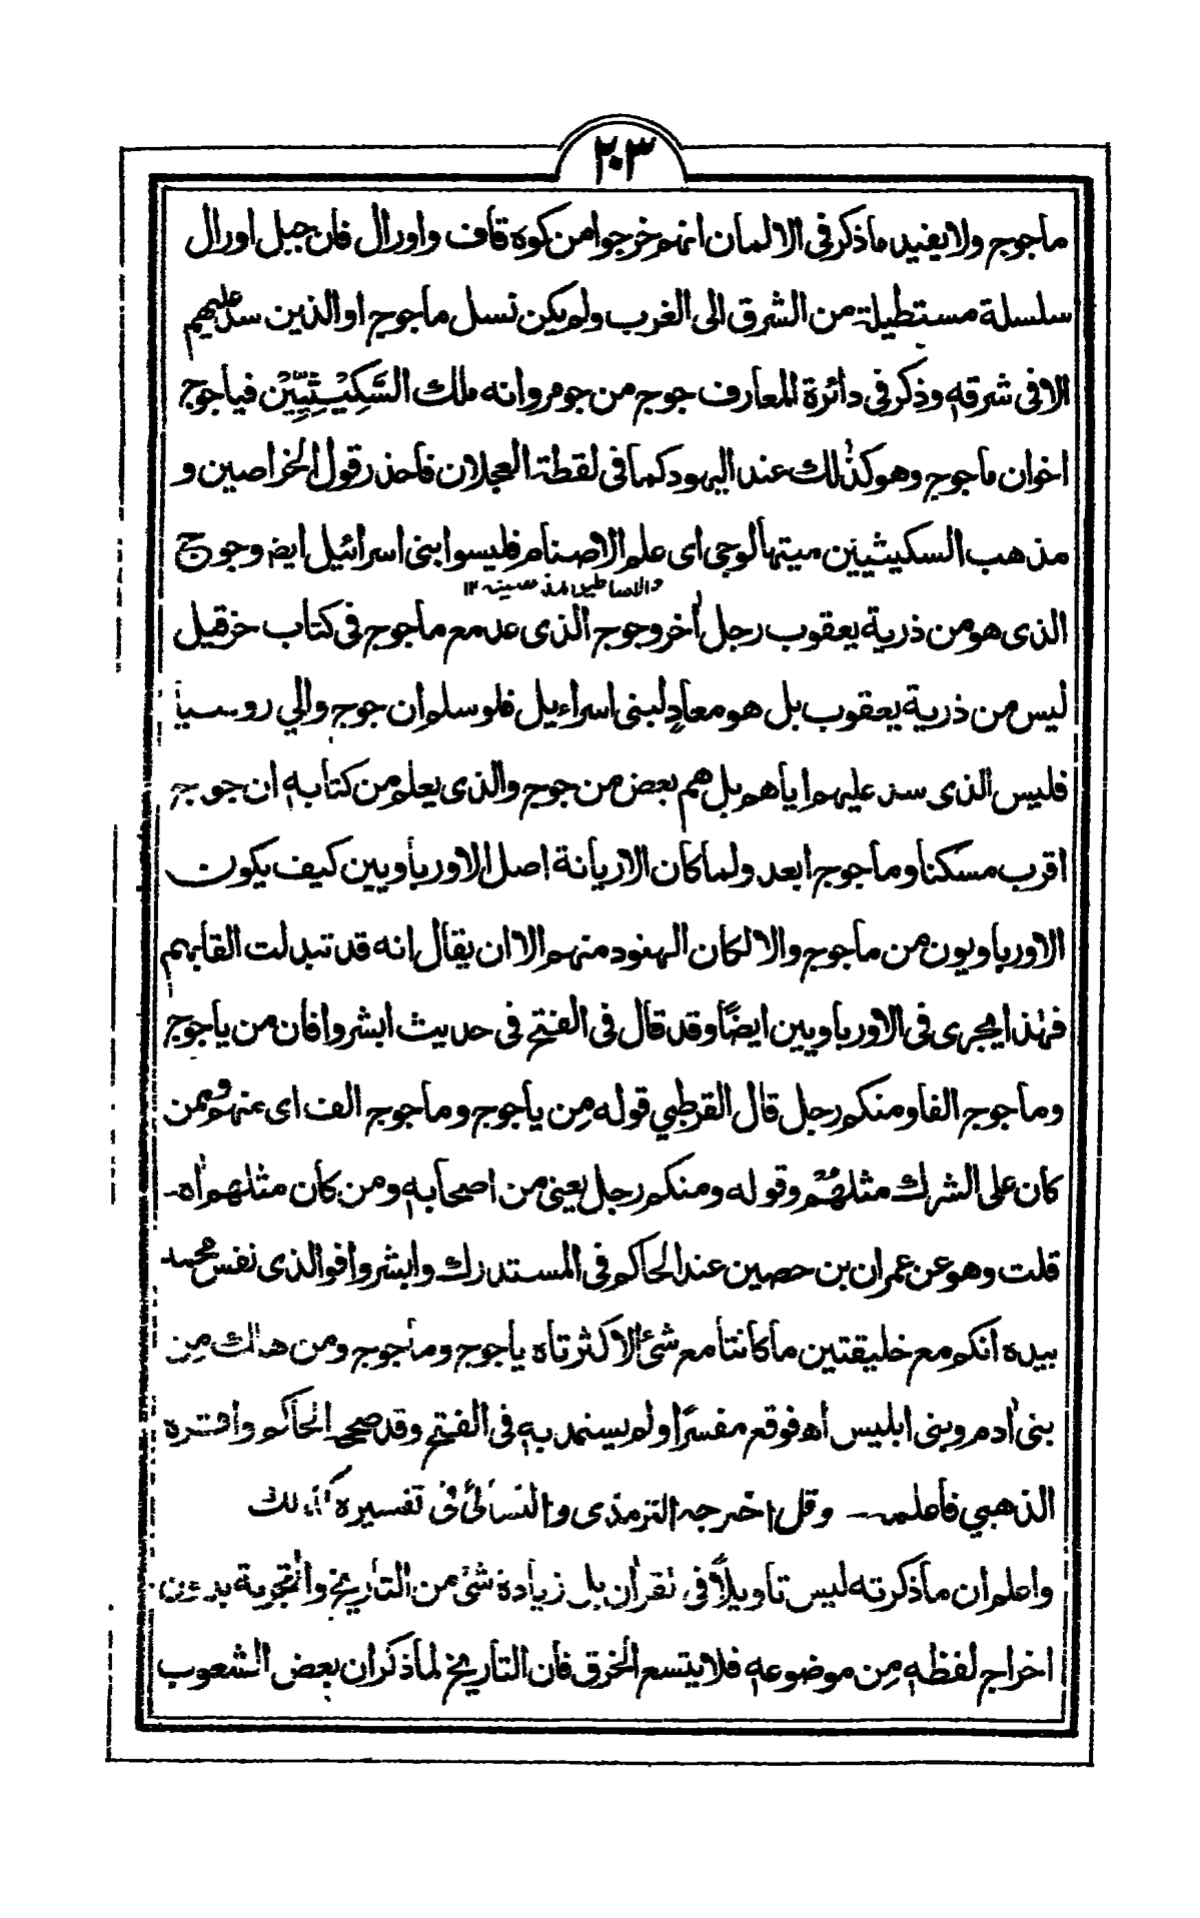 ٢٠٣
ماجوج ولا يفيد ماذكر فى الالمان انهم خرجوا من كوه قاف واورال فان جبل اورال
سلسلة مستطيلة من الشرق الى الغرب ولم يكن نسل ماجوج او الذين سد عليهم
الا فى شرقه وذكر فى دائرة المعارف جوج من جومر وانه ملك السَّكِيْثِيِّيْن فياجوج
اخوان ماجوج وهو كذٰلك عند اليهود كما فى لقطة العجلان فاحذر قول الخراصين و
مذهب السكيثيين ميتهالوجى اى علم الاصنام فليسوا بنى اسرائيل ايضا وجوج
والاساطير ١٢
الذى هو من ذرية يعقوب رجل اٰخر وجوج الذى عد مع ماجوج فى كتاب حزقيل
ليس من ذرية يعقوب بل هو معادٍ لبنى اسراءيل فلو سلم ان جوج والي روسيا
فليس الذى سد عليهم اياهم بل هم بعض من جوج والذى يعلم من كتابه ان جوج
اقرب مسكنا وماجوج ابعد ولما كان الاريانة اصل الاورباويين كيف يكون
الاورباويون من ماجوج والا لكان الهنود منهم الا ان يقال انه قد تبدلت القابهم
فهٰذا يجرى فى الاورباويين ايضًا وقد قال فى الفتح فى حديث ابشروا فان من ياجوج
وماجوج الفا ومنكم رجل قال القرطبي قوله مِن ياجوج وماجوج الف اى منهم وممن
كان على الشرك مثلهم وقوله ومنكم رجل يعنى من اصحابه ومن كان مثلهم اٰه۔
قلت وهو عن عمران بن حصين عند الحاكم فى المستدرك وابشروا فوالذى نفس محمد
بيده انكم مع خليقتين ماكانتا مع شئ الا كثرتاه ياجوج وماجوج ومن هلك من
بنى اٰدم وبنى ابليس اه فوقع مفسرًا ولم يسنده به فى الفتح وقد صححه الحاكم واقره
الذهبي فاعلمه ـــ وقد اخرجه الترمذى والنسائى فى تفسيره كذلك
واعلم ان ماذكرته ليس تاويلًا فى القراٰن بل زيادة شئ من التاريخ والتجربة بدون
اخراج لفظه مِن موضوعه فلا يتسع الخرق فان التاريخ لما ذكر ان بعض الشعوب